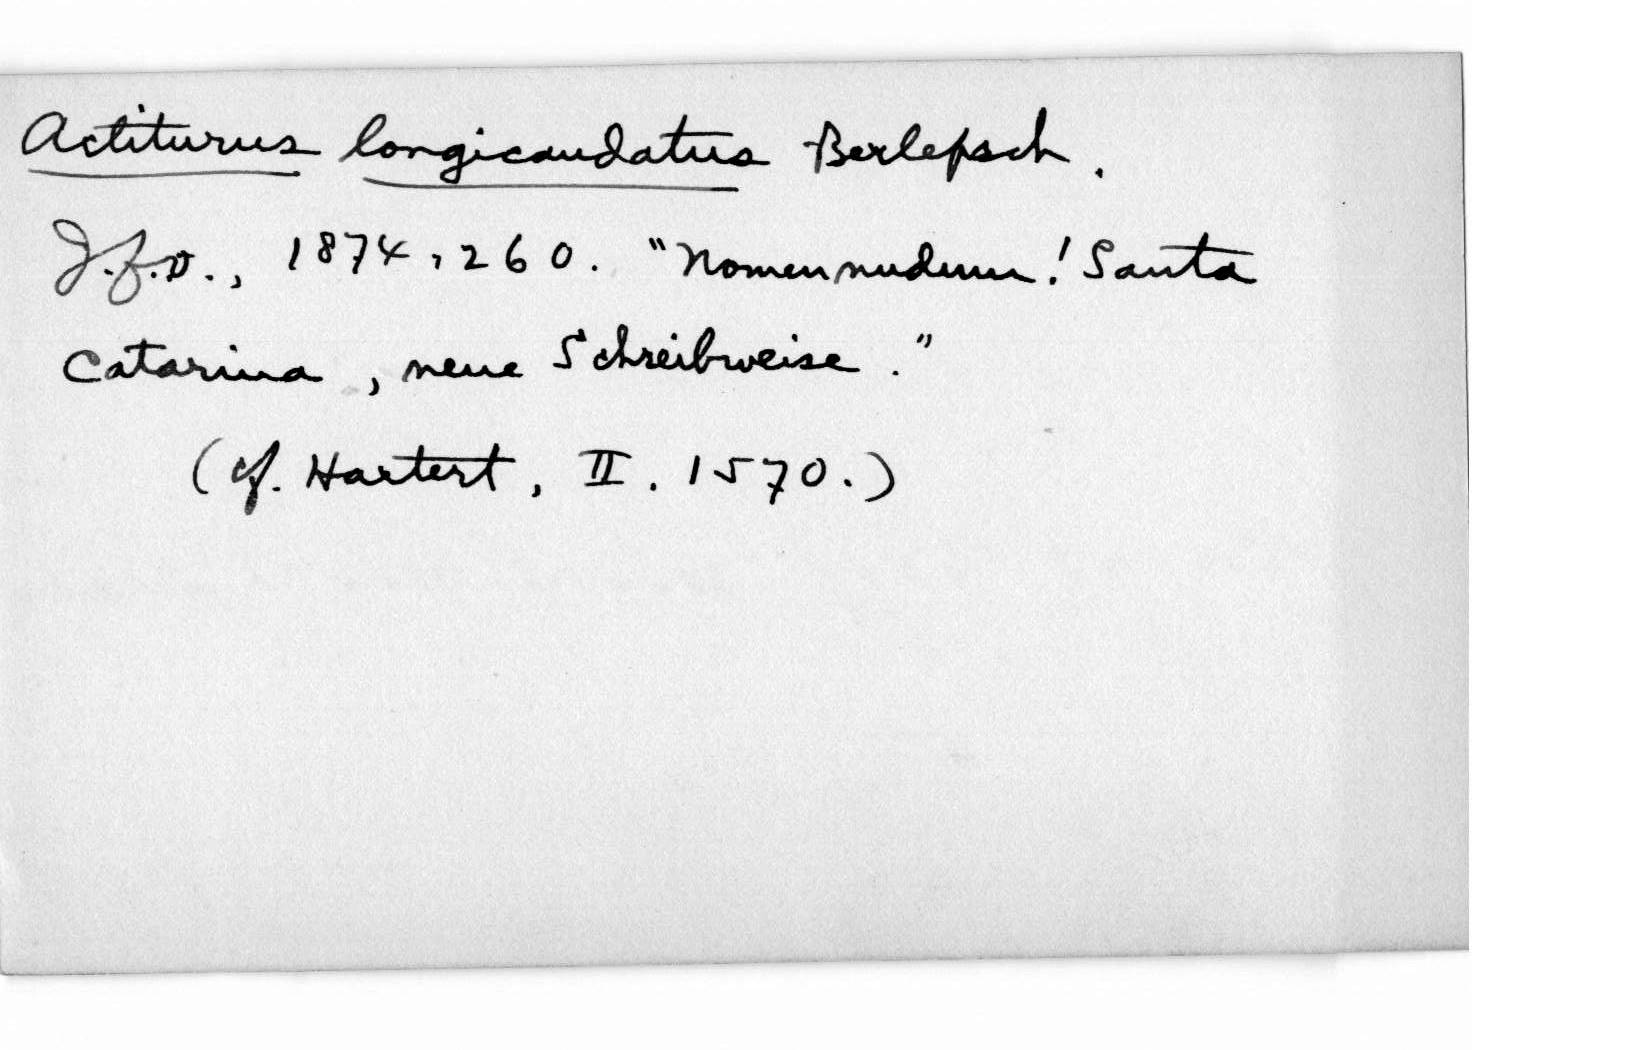 Actiturus longicaudatus Berlepsch.
J.f.O., 1874, 260. "Nomen nudum! Santa
Catarina, neue Schreibweise."
(cf. Hartert, II. 1570.)